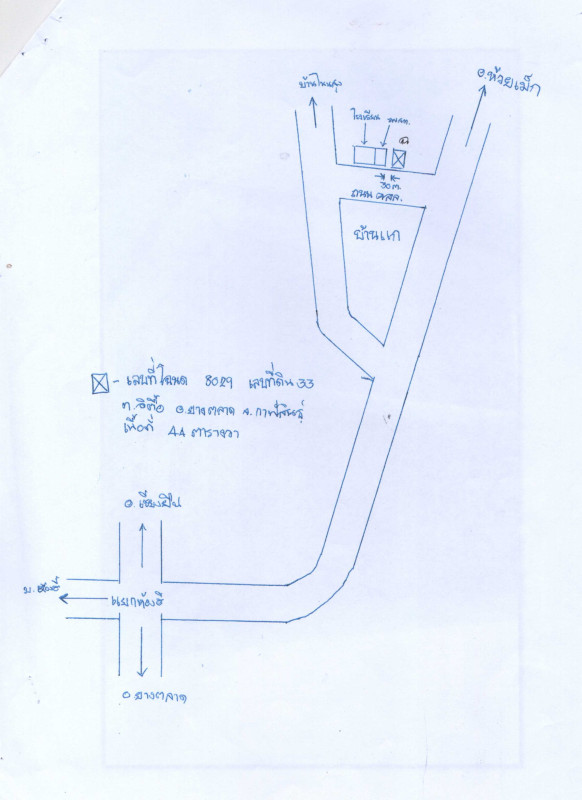 อ.ห้วยเม็ก
โรงเรียน
30 ม.
ถนน คสล.
บ้านแก
- เลขที่โฉนด 8029 เลขที่ดิน 33
ต.อิตื้อ อ.ยางตลาด จ.กาฬสินธุ์
เนื้อที่ 44 ตารางวา
อ.เชียงยืน
แยกห้องสี
อ.ยางตลาด